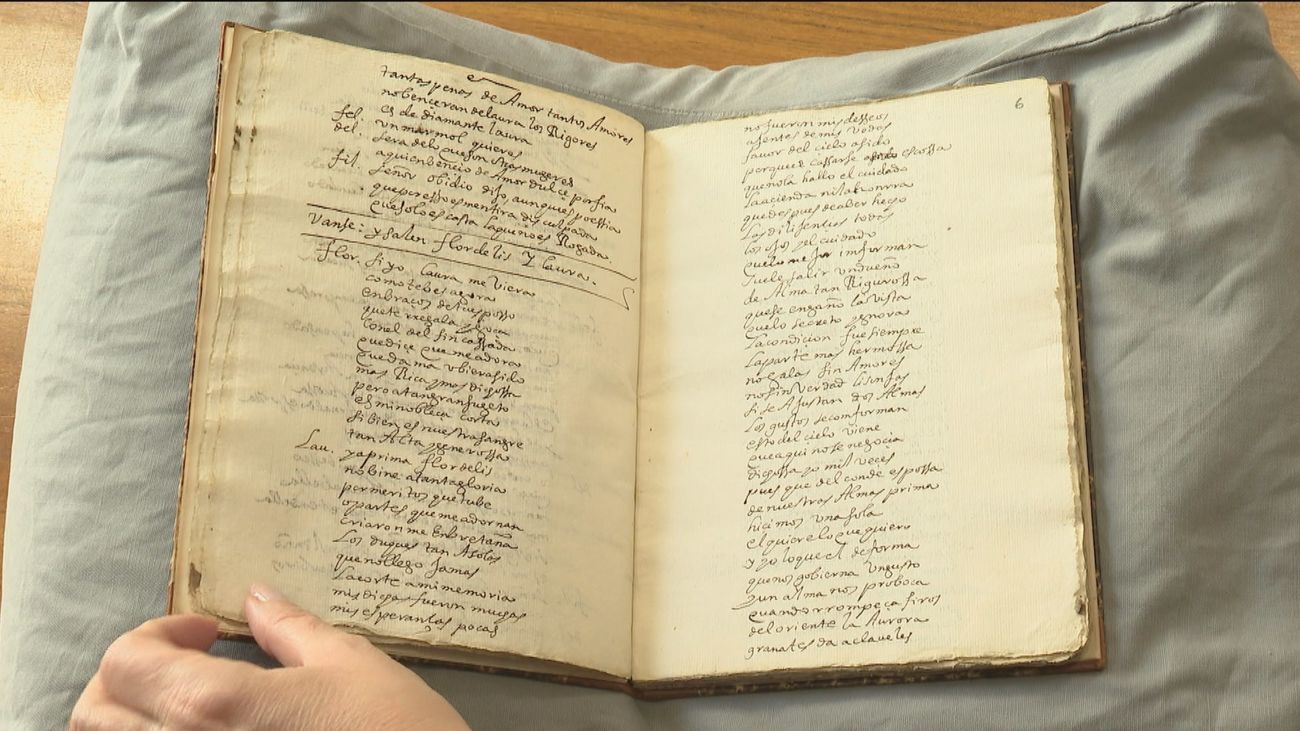 tantas penas de Amor tantos Amores
no benceran de laura los Rigores
fel. es de diamante laura
del. un marmol quieres
sera de lo que son otras mugeres
fil. a quien bencio de Amor dulce porfia
señor obidio dijo aunque es poessia
que
que solo es casta la que no es Rogada
Vanse: y salen flordelis y laura.
flor. si yo laura me viera
como te bes agora
en braços de tu esposso
que te rregala y
con el del fin cassada
que dice que me adora
que dama ubiera sido
mas Rica y mas dichossa
pero a tan gran sugeto
es mi nobleça corta
si bien es nuestra sangre
tan Alta y generossa
Lau. ya prima flordelis
no bine a tanta gloria
por meritos que tube
o partes que me adornan
criaronme En bretaña
Los duques tan A solas
que no llego Jamas
La corte a mi memoria
mis dichas fueron muchas
mis esperanças pocas
6
no fueron mis desseos
asentes de mis vodas
fauor del cielo a sido
porque es cassarse cossa
que no la hallo el cuidado
La acienda ni la onrra
que despues de aber hecho
Las dilijentias todas
los ojos y el cuidado
que lo mejor informan
suele salir un dueño
de Alma tan Rigurossa
que se engaño la vista
que lo secreto ygnora
La condicion fue siempre
La parte mas hermossa
no galas sin Amores
no sin verdad lisonjas
si se Ajustan dos Almas
Los gustos se comforman
esto del cielo viene
que aqui no se negocia
dichossa yo mil veces
pues que del conde espossa
de nuestras Almas prima
hicimos una sola
el quiere lo que quiero
y yo lo que el de forma
que nos gobierna un gusto
y un alma nos proboca
quando rrompe çafiros
del oriente la Aurora
granates da a claueles